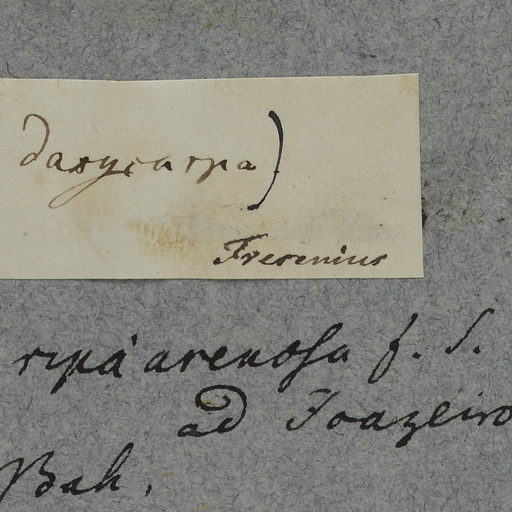 dasycarpa)
Fresenius
ripá arenosa f. S.
ad Joazeiro
Bah.